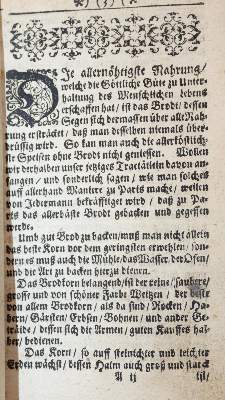 *) (3) (*
DIe allernöhtigste Nahrung/
welche die Göttliche Güte zu Unter-
haltung des Menschlichen Lebens
erschaffen hat/ ist das Brodt/ dessen
Segen sich dermassen über alle Nah-
rung erstrecket/ daß man desselben niemals über-
drüssig wird. So kan man auch die allerköstlich-
ste Speisen ohne Brodt nicht geniessen. Wollen
wir derhalben unser jetziges Tractätlein davon an-
fangen/ und sonderlich sagen/ wie man solches
auff allerhand Manier zu Paris macht/ weilen
von Jedermann bekräfftiget wird/ daß zu Pa-
ris das allerbäste Brodt gebacken und gegessen
werde.
Umb gut Brod zu backen/muß man nicht allein
das beste Korn vor dem geringsten erwehlen/ son-
dern es muß auch die Mühle/das Wasser/der Ofen/
und die Art zu backen hierzu dienen.
Das Brodtkorn belangend/ist der reine/saubere/
grosse und von schöner Farbe Weitzen/ der beste
von allen Brodkorn/ als da sind/ Rocken/ Ha-
bern/ Gärsten/ Erbsen/ Bohnen/ und ander Ge-
träide/ dessen sich die Armen/ guten Kauffes hal-
ber/ bedienen.
Das Korn/ so auff steinichter und leichter
Erden wächst/ dessen Halm auch groß und starck
A ij ist/